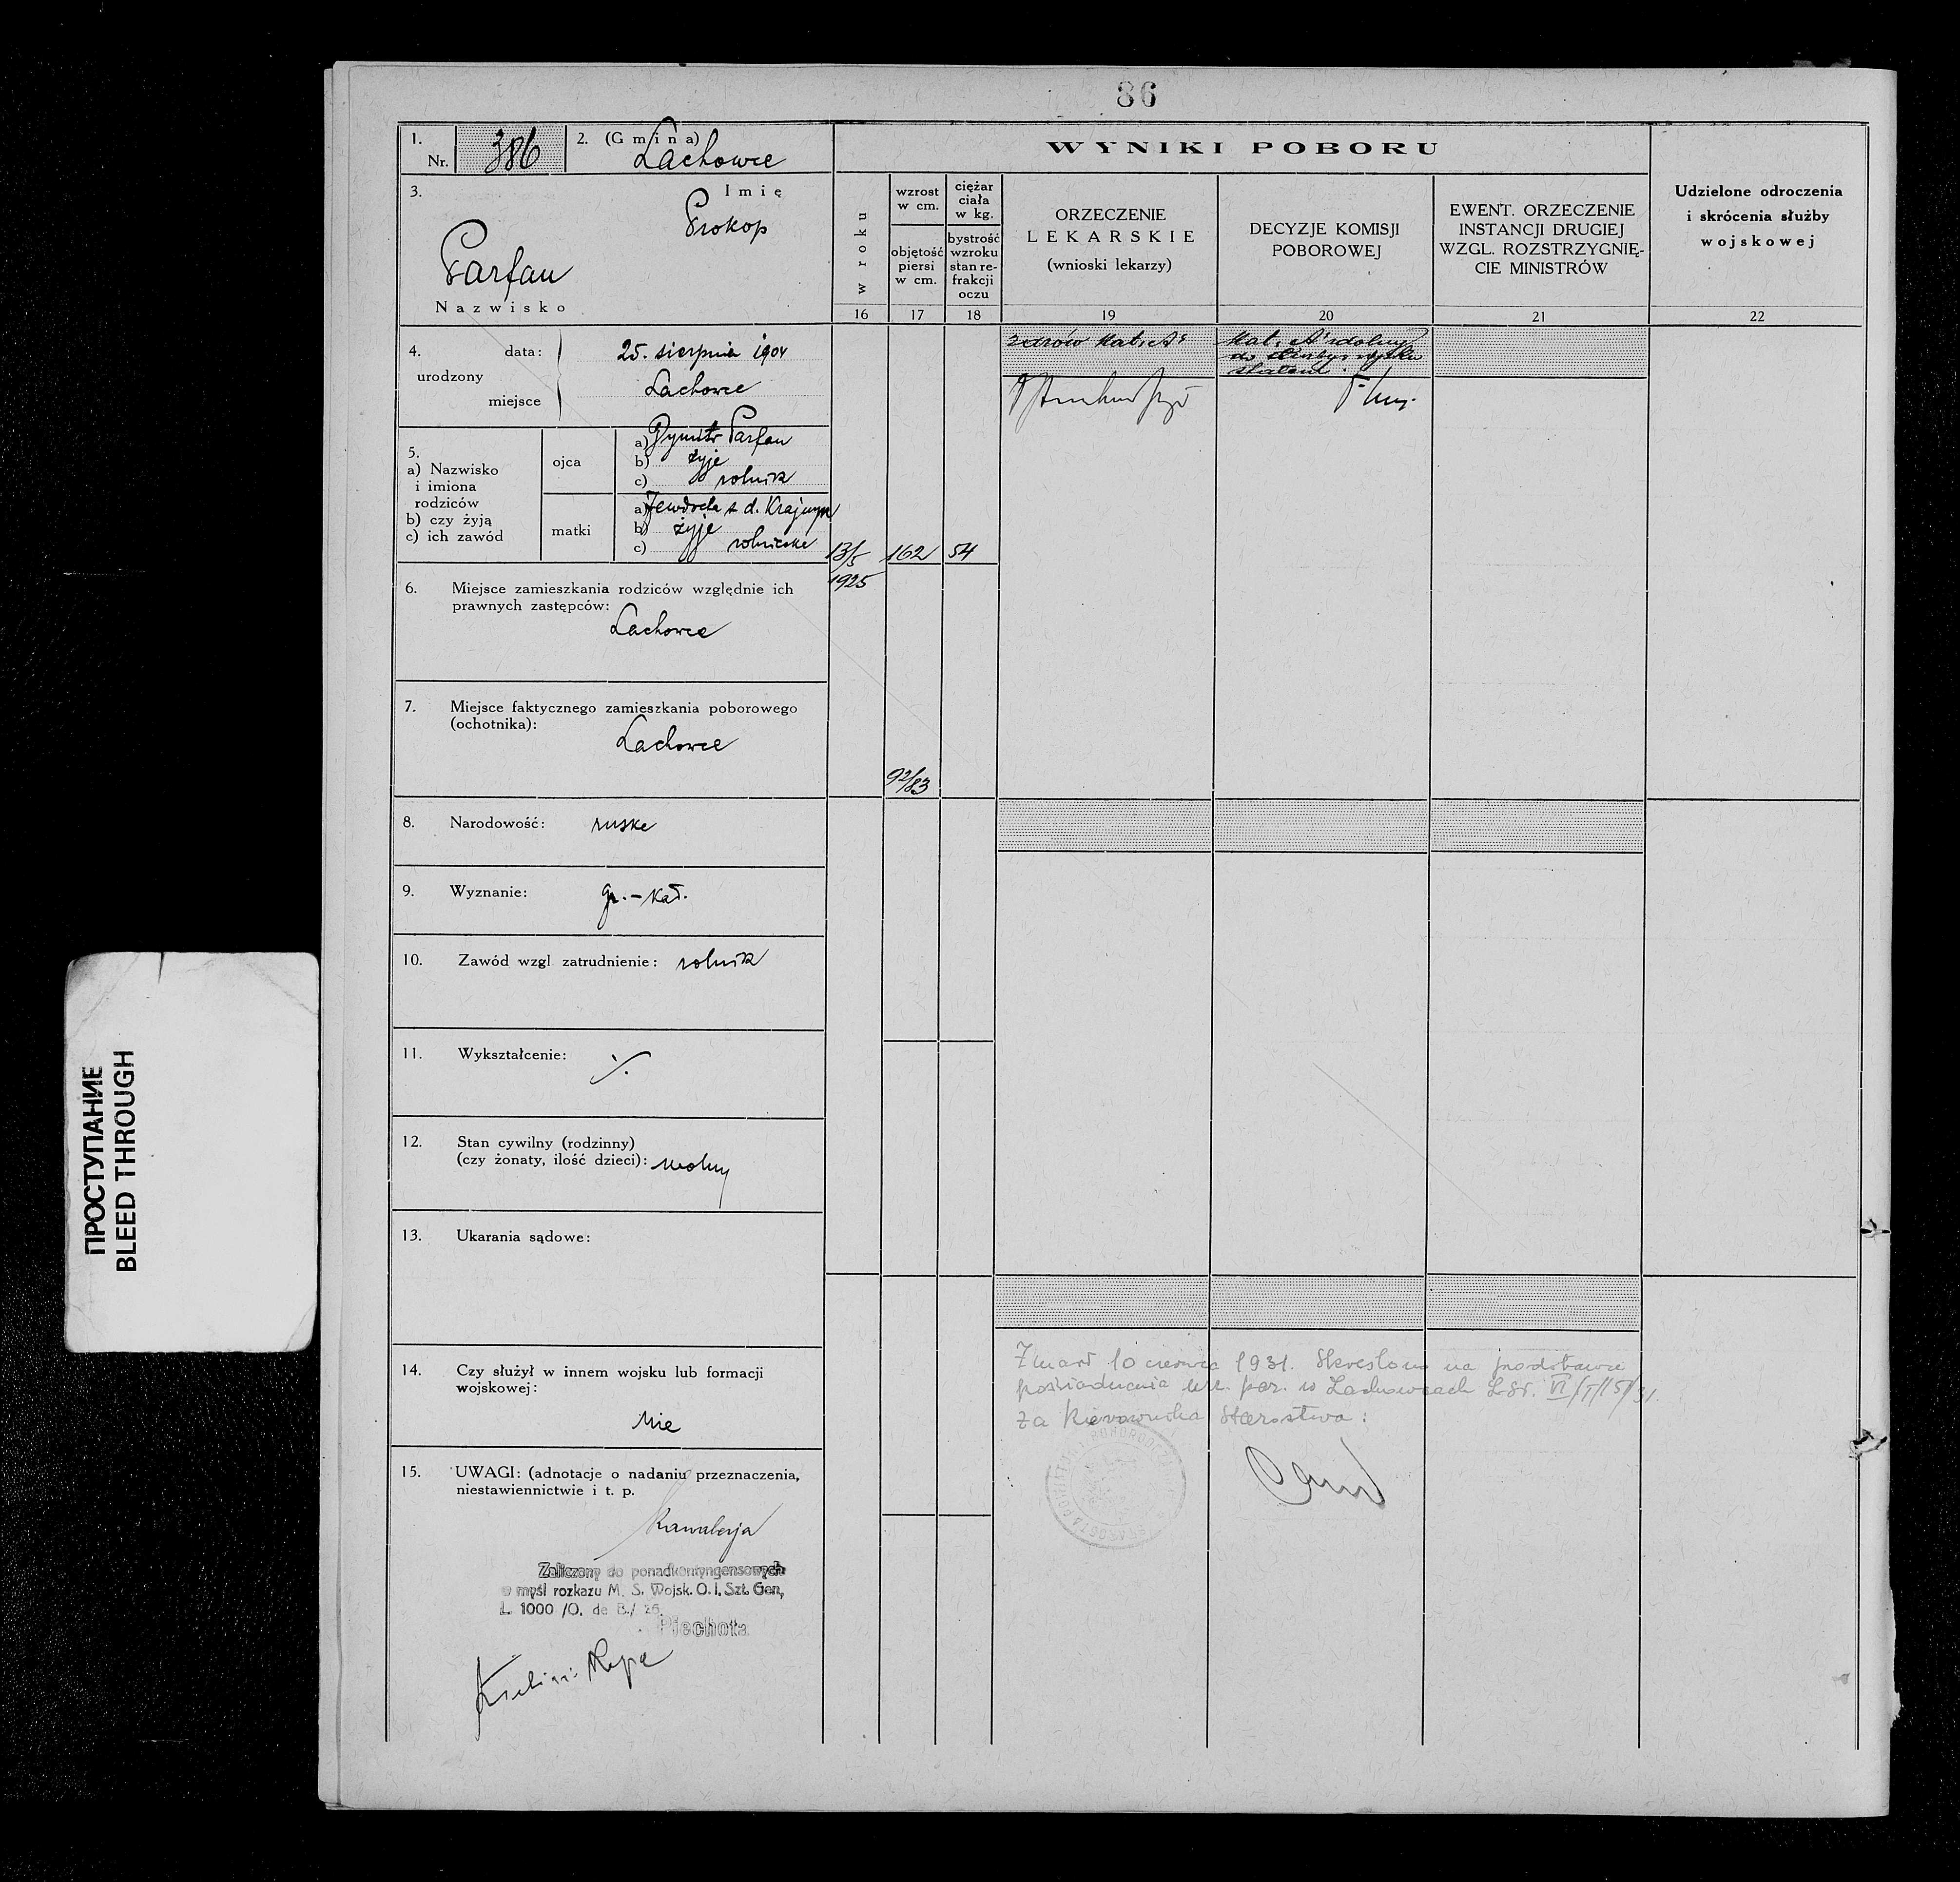 86
1.
Nr. 386
2. (Gmina)
Lachowce
3. Imię
Prokop
Parfan
Nazwisko
4. data: 25. sierpnia 1904
urodzony
miejsce Lachowce
5.
a) Nazwisko
i imiona
rodziców
b) czy żyją
c) ich zawód
ojca
a) Dymitr Parfan
b) żyje
c) rolnik
matki
a) Jewdocha z d. Krajnyk
b) żyje
c) rolniczka
6. Miejsce zamieszkania rodziców względnie ich
prawnych zastępców:
Lachowce
7. Miejsce faktycznego zamieszkania poborowego
(ochotnika):
Lachowce
8. Narodowość: ruska
9. Wyznanie: gr.-kat.
10. Zawód wzgl zatrudnienie: rolnik
11. Wykształcenie: ./.
12. Stan cywilny (rodzinny)
(czy żonaty, ilość dzieci): wolny
13. Ukarania sądowe:
14. Czy służył w innem wojsku lub formacji
wojskowej:
Nie
15. UWAGI: (adnotacje o nadaniu przeznaczenia,
niestawiennictwie i t. p.
Kawalerja
Zaliczony do ponadkontyngensowych
w myśl rozkazu M. S. Wojsk. O. I. Szt. Gen,
L. 1000 /O. de B./ 26.
Piechota
WYNIKI POBORU
w roku
16
wzrost
w cm.
objętość
piersi
w cm.
17
ciężar
ciała
w kg.
bystrość
wzroku
stan re-
frakcji
oczu
18
ORZECZENIE
LEKARSKIE
(wnioski lekarzy)
19
DECYZJE KOMISJI
POBOROWEJ
20
EWENT. ORZECZENIE
INSTANCJI DRUGIEJ
WZGL. ROZSTRZYGNIĘ-
CIE MINISTRÓW
21
Udzielone odroczenia
i skrócenia służby
wojskowej
22
13/5
1925
162
54
92/83
zdrów Kat. A
Kat. A zdolny
do służby wojsko
Zmarł 10 czerwca 1931. Skreślono na podstawie
poświadczenia urz. par. w Lachowcach
Za Kierownika Starostwa:
ПРОСТУПАНИЕ
BLEED THROUGH